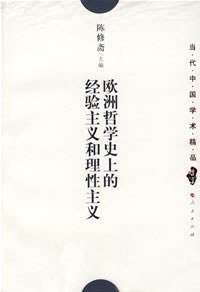 当·代·中·国·学·术·精·品
哲学
人民出版社
陈修斋
主编
欧洲哲学史上的
经验主义和理性主义